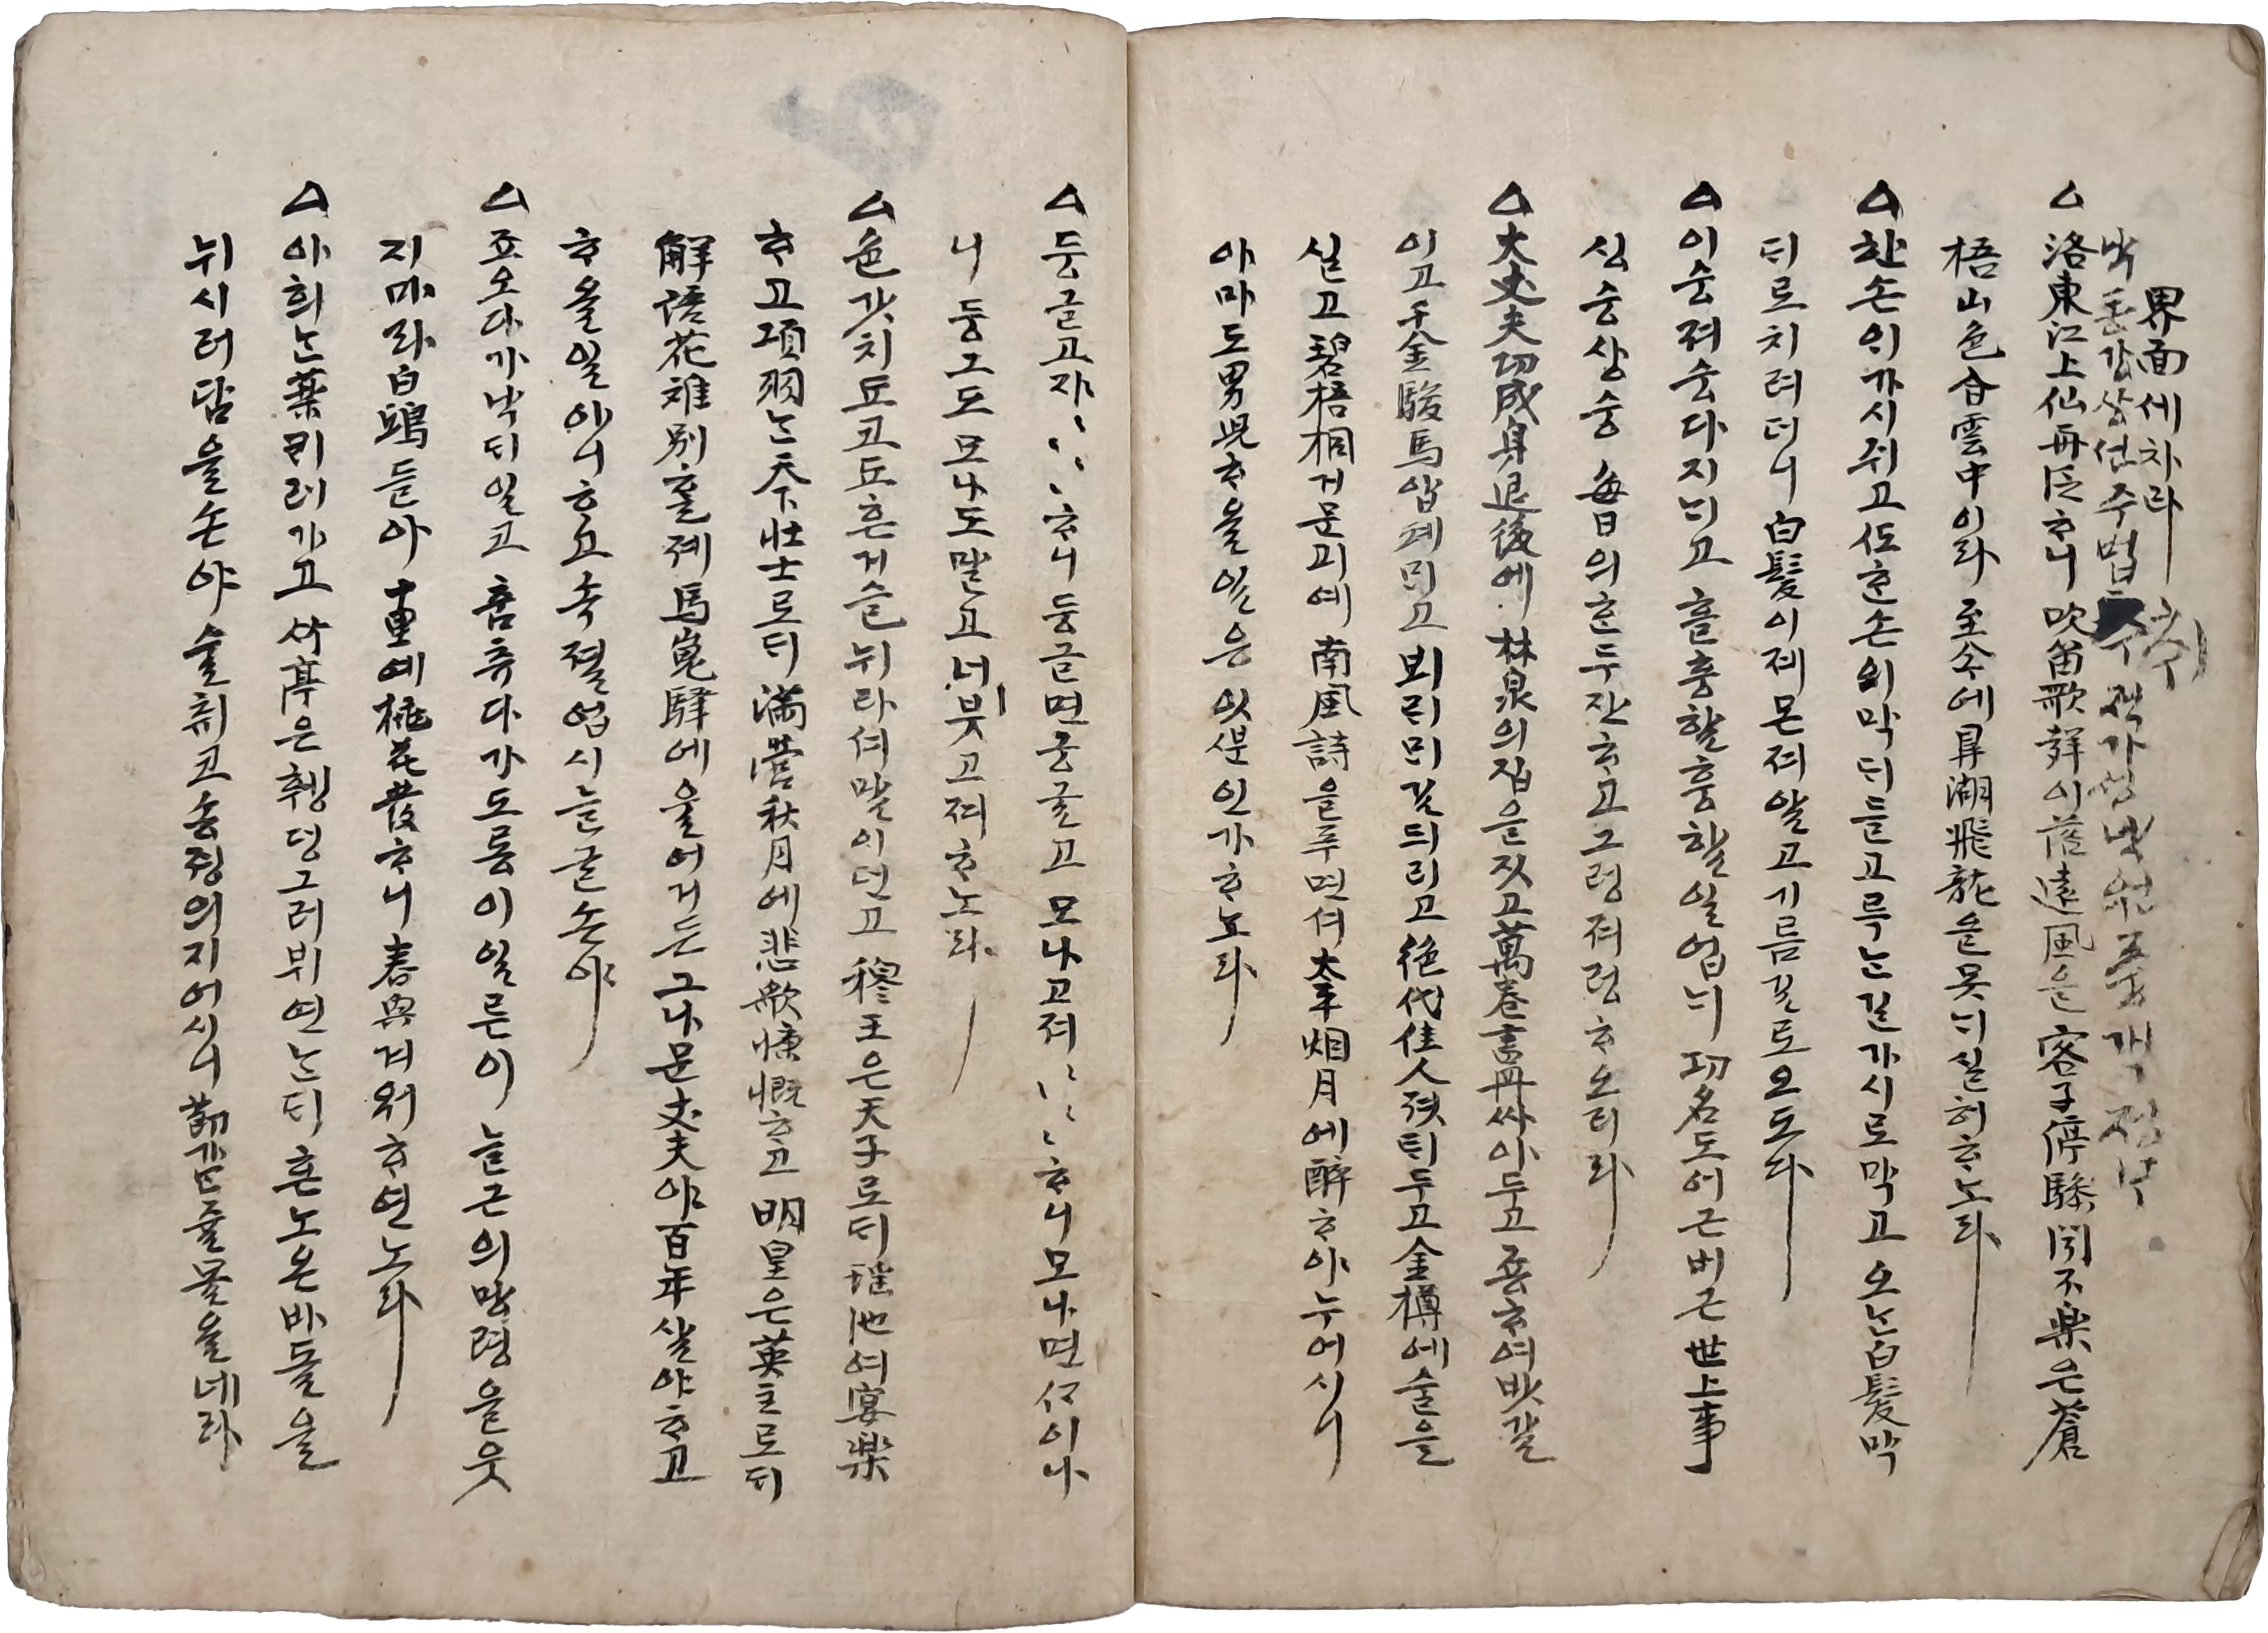 界面세차라
洛東江上仙舟泛ᄒᆞ니 吹笛歌聲이 落遠風을 客子停驂聞不樂은 蒼
梧山色 合雲中이라 至今에 鼎湖飛龍을 못ᄂᆡ 실허ᄒᆞ노라
△ 한 손의 가ᄉᆡ 쥐고 ᄯᅩ ᄒᆞᆫ 손의 막ᄃᆡ 들고 륵ᄂᆞᆫ 길 가ᄉᆡ로 막고 오ᄂᆞᆫ 白髮 막
ᄃᆡ로 치려더니 白髮이 졔 몬져 알고 기름길로 오도다
△ 이슝져슝 다 지ᄂᆡ고 흘충할 훙할 일 업ᄂᆡ 功名도 어근버근 世上事
싱슝상슝 每日의 ᄒᆞᆫ두 잔 ᄒᆞ고 그렁져렁 ᄒᆞ오리라
△ 大丈夫 功成身退後에 林泉의 집을 짓고 萬卷書冊 싸아두고 죵ᄒᆞ여 밧 갈
이고 千金駿馬 압폐 ᄆᆡ고 보ᄅᆡᄆᆡ 길드리고 絶代佳人 겻ᄐᆡ 두고 金樽에 술을
실고 碧梧桐 거문괴예 南風詩을 푸면셔 太平烟月에 醉ᄒᆞ야 누어시니
아마도 男兒 ᄒᆞ올 일은 잇ᄲᅮᆫ인가 ᄒᆞ노라
△ 둥글고쟈 〻〻〻 ᄒᆞ니 둥글면 궁글고 모나고져 〻〻〻 ᄒᆞ니 모나면 ᄭᅥᆨ이나
니 둥그도 모나도 말고 너붓고져 ᄒᆞ노라
△ 色갓치 됴코 됴흔 게슬 뉘라셔 말이던고 穆王은 天子로ᄃᆡ 瑤池여 宴樂
ᄒᆞ고 項羽ᄂᆞᆫ 天下壯士로ᄃᆡ 滿營秋月에 悲歌慷慨ᄒᆞ고 明皇은 英主로ᄃᆡ
解語花 離別ᄒᆞᆯ 졔 馬嵬驛에 울어거든 그나문 丈夫야 百年 살야 ᄒᆞ고
ᄒᆞ올 일 아니ᄒᆞ고 속졀업시 늘글손야
△ 죠오다가 낙ᄃᆡ 일코 춤츄다가 도롱이 일른이 늘근의 망령을 웃
지 마라 白鷗들아 十里예 桃花發ᄒᆞ니 春興겨워 ᄒᆞ연노라
△ 아희ᄂᆞᆫ 藥 ᄏᆡ레 가고 竹亭은 휑뎅그러 뷔연ᄂᆞᆫᄃᆡ 흔노온 바돌을
뉘시러 담을손야 술 취코 송졍의 지어시니 節 가ᄂᆞᆫ 쥴 몰올네라